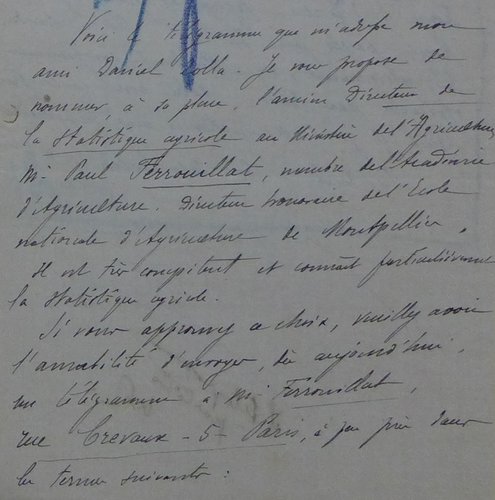 Voici le télégramme que m'adresse mon
ami Daniel Zolla. Je vous propose de
nommer, à sa place, l'ancien Directeur de
la statistique agricole au Ministère de l'Agriculture
Mr Paul Ferrouillat, membre de l'Académie
d'Agriculture. Directeur honoraire de l'École
nationale d'Agriculture de Montpellier,
Il est très compétent et connaît particulièrement
la statistique agricole.
Si vous approuvez ce choix, veuillez avoir
l'amabilité d'envoyer, dès aujourd'hui,
un télégramme à Mr Ferrouillat,
rue Crevaux - 5 - Paris, à peu près dans
les termes suivants :